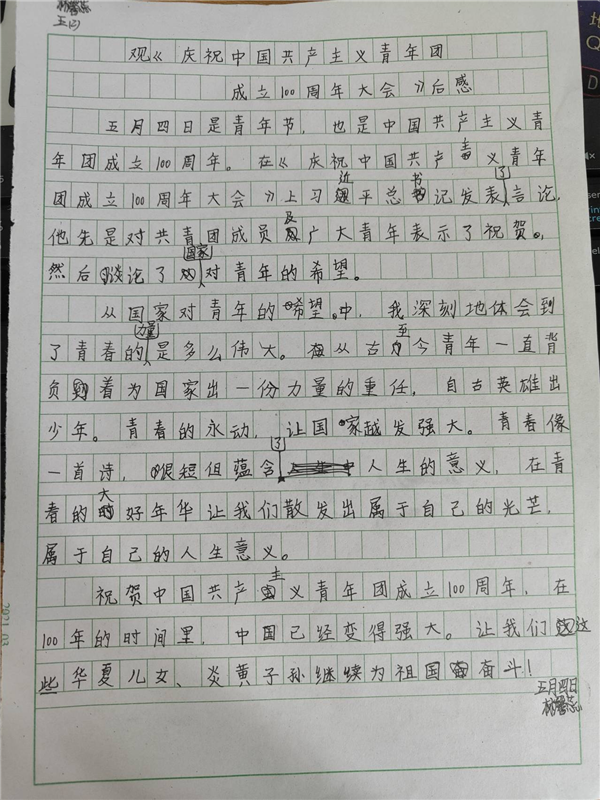 五(2)
观《庆祝中国共产主义青年团
成立100周年大会》后感
五月四日是青年节，也是中国共产主义青
年团成立100周年。在《庆祝中国共产主义青年
团成立100周年大会》上习近平总书记发表了言论，
他先是对共青团成员及广大青年表示了祝贺。
然后谈论了国家对青年的希望。
从国家对青年的希望中，我深刻地体会到
了青春的力量是多么伟大。从古至今青年一直背
负着为国家出一份力量的重任，自古英雄出
少年。青春的永动，让国家越发强大。青春像
一首诗，很短但蕴含了人生的意义，在青
春的大好年华让我们散发出属于自己的光芒，
属于自己的人生意义。
祝贺中国共产主义青年团成立100周年，在
100年的时间里，中国已经变得强大。让我们这
些华夏儿女、炎黄子孙继续为祖国奋斗！
五月四日